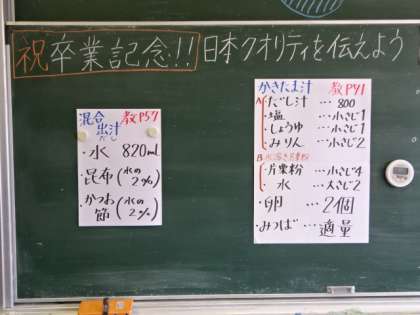 祝卒業記念!! 日本クオリティを伝えよう
混合出汁 教P57
だし
・水 820mL
・昆布(水の2%)
・かつお節(水の2%)
かきたま汁 教P41
A ・だし汁 … 800
・塩 … 小さじ1
・しょうゆ … 小さじ1
・みりん … 小さじ2
B 水溶き片栗粉
・片栗粉 … 小さじ4
水 … 大さじ2
・卵 … 2個
・みつば … 適量